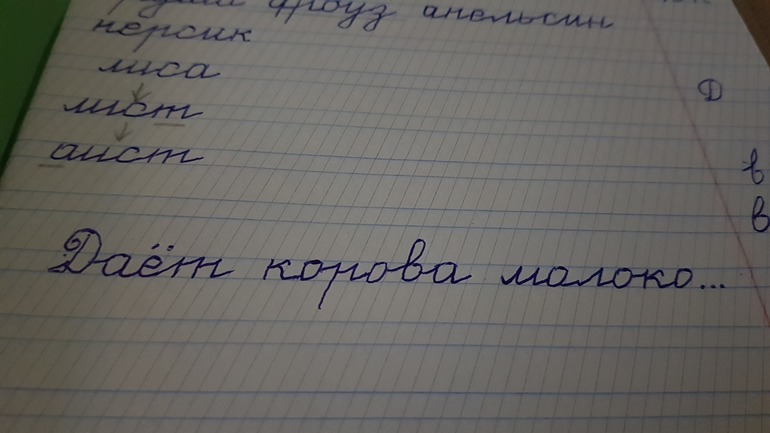 арбуз апельсин
персик
лиса
лист
аист
Даёт корова молоко...
Д
в
в